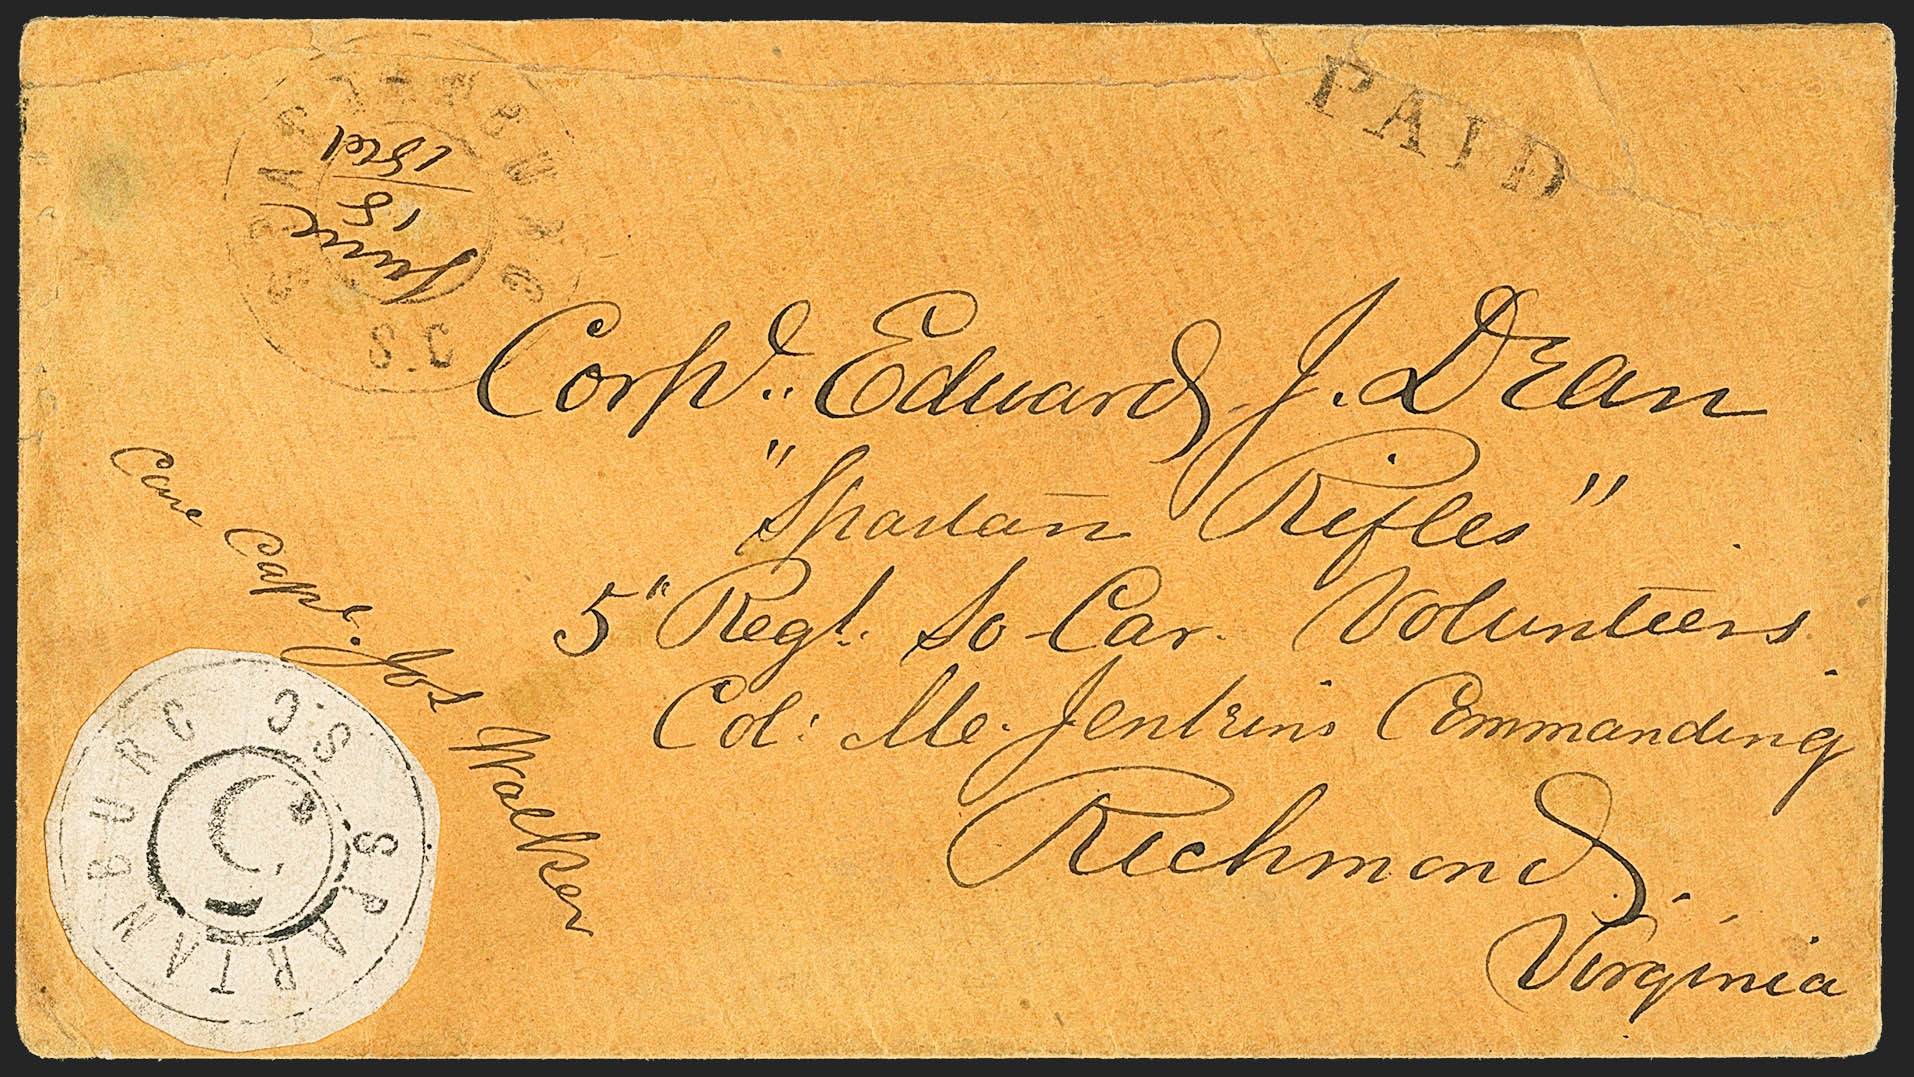 SPARTANBURG
S.C.
June
18
1861
PAID
Corpl. Edward J. Dean
"Spartan Rifles"
5" Regt. So Car. Volunteers
Col: M. Jenkins Commanding
Richmond.
Virginia
Care Capt. Jos Walker
SPARTANBURG S.C.
5